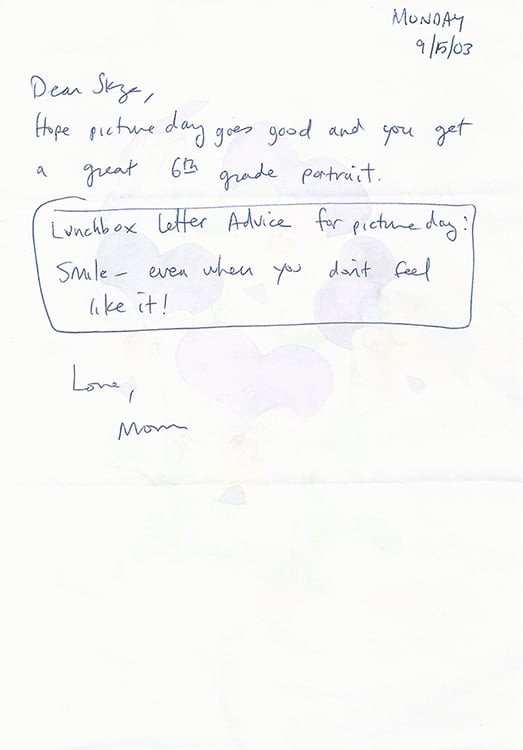 MONDAY
9/15/03
Dear Skye,
Hope picture day goes good and you get
a great 6th grade portrait.
Lunchbox Letter Advice for picture day:
Smile – even when you don't feel
like it!
Love,
Mom